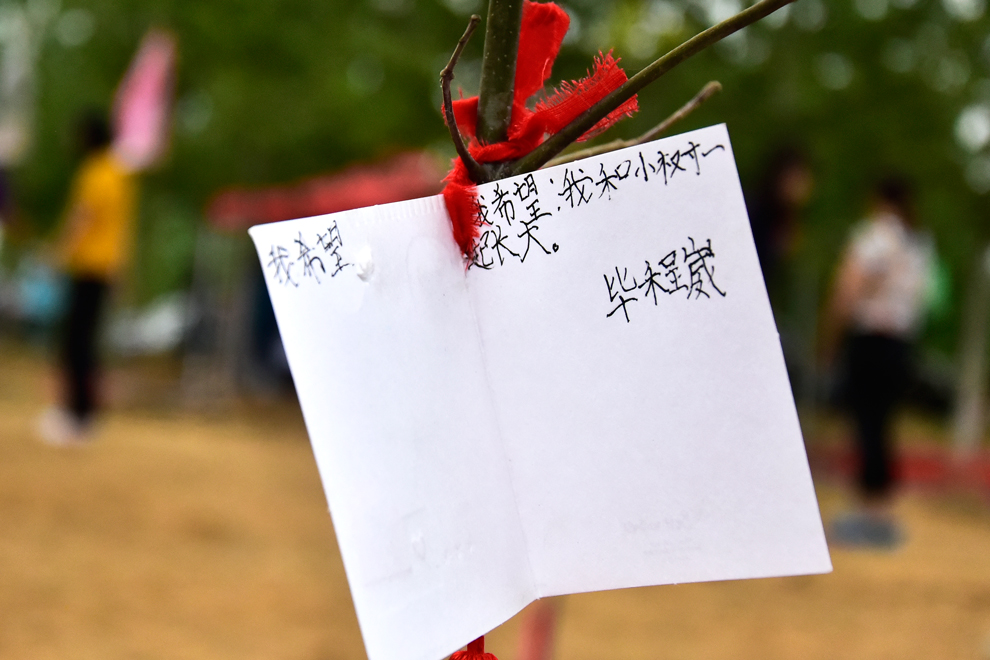 我希望
我希望:我和小权寸一
起长大。
毕程崴